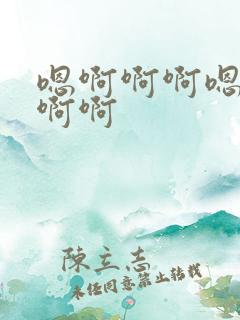 嗯啊啊啊嗯
啊啊
陳立志
未经同意禁止转载